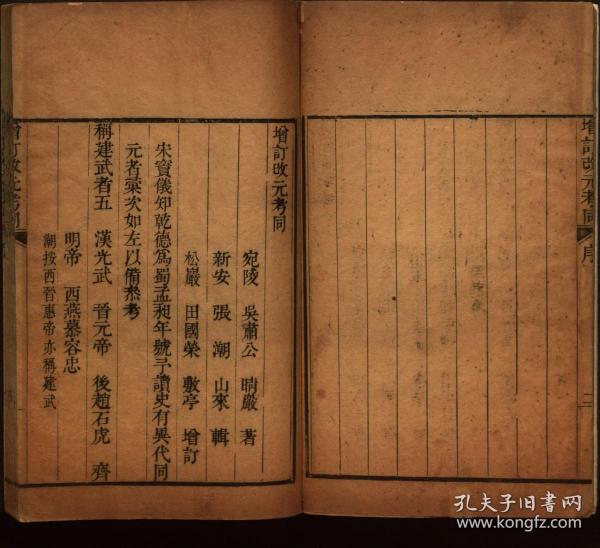 增訂改元考同
序
二
增訂改元考同
宛陵 吳肅公 晴巖 著
新安 張潮 山來 輯
松巖 田國榮 敷亭 增訂
宋竇儀知乾德爲蜀孟昶年號予讀史有異代同
元者彙次如左以備叅考
稱建武者五 漢光武 晉元帝 後趙石虎 齊
明帝 西燕慕容忠
潮按西晉惠帝亦稱建武
增訂改元考同
孔夫子旧书网
www.kongfz.com